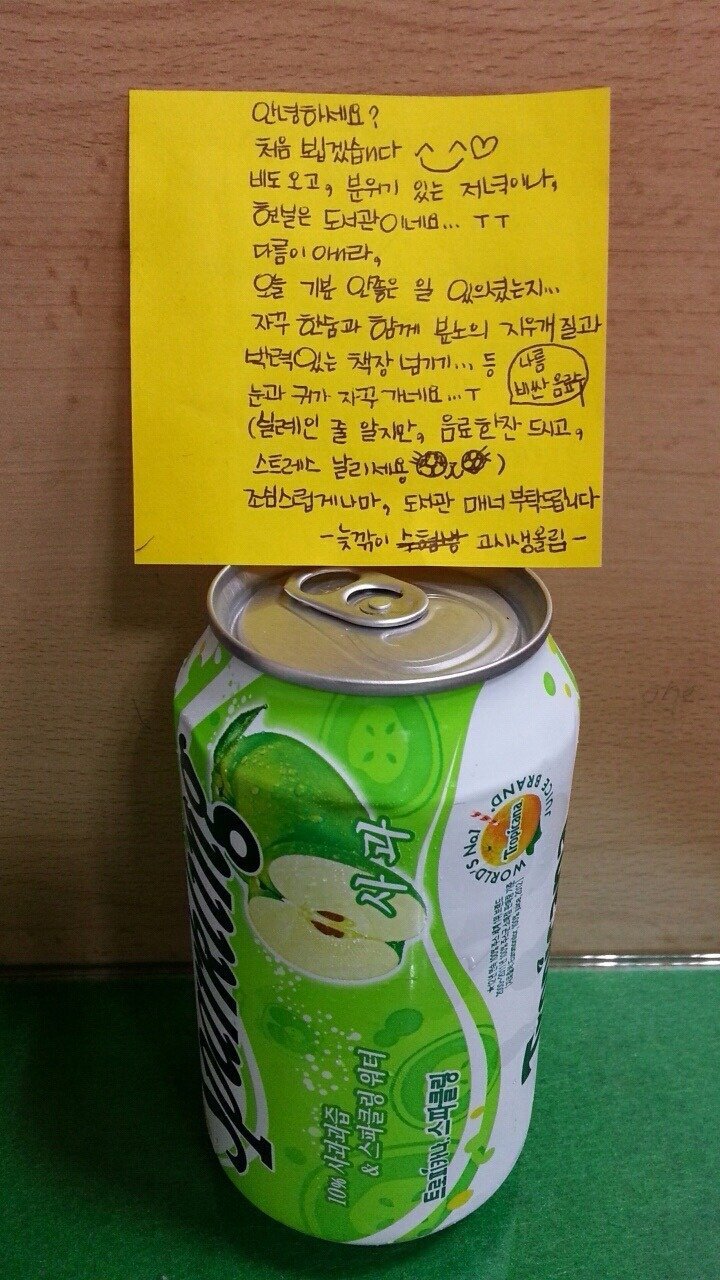 안녕하세요?
처음 뵙겠습니다 ^_^♡
비도 오고, 분위기 있는 저녁이나,
현실은 도서관이네요... ㅜㅜ
다름이 아니라,
오늘 기분 안좋은 일 있으셨는지...
자꾸 한숨과 함께 분노의 지우개질과
박력있는 책장 넘기기... 등
눈과 귀가 자꾸 가네요...ㅜ
나름
비싼 음료
(실례인 줄 알지만, 음료한잔 드시고,
스트레스 날리세용)
조심스럽게나마, 도서관 매너 부탁드립니다
-늦깎이 고시생올림-
Sparkling
사과
WORLD'S No.1 JUICE BRAND.
Tropicana
10% 사과과즙
& 스파클링 워터
트로피카나 스파클링
one